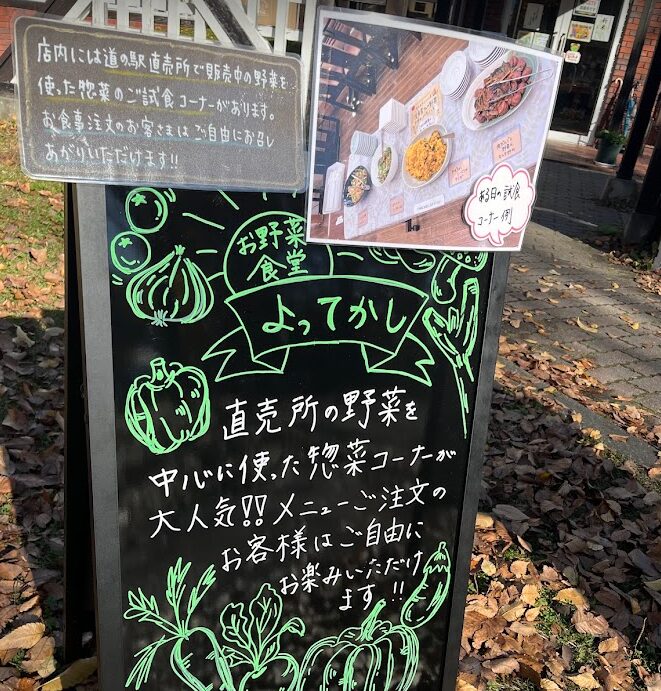 店内には道の駅直売所で販売中の野菜を
使った惣菜のご試食コーナーがあります。
お食事注文のお客さまはご自由にお召し
あがりいただけます!!
ある日の試食
コーナー例
お野菜
食堂
よってかし
直売所の野菜を
中心に使った惣菜コーナーが
大人気!!メニューご注文の
お客様はご自由に
お楽みいただけ
ます!!